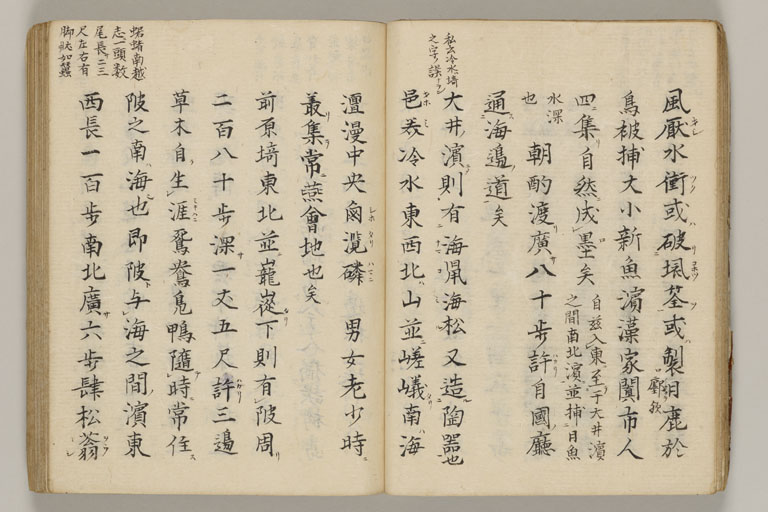 私云冷水埼
之字ノ誤
風厭水衝或破堨荃或製日鹿於
鳥被捕大小新魚濱藻家闐市人
四集自然成墨矣
自茲入東至于大井濱
之間南北濱並捕白魚
水深
也
朝酌渡廣八十歩許自國廳
通海邉道矣
大井濱則有海鼡海松又造陶器也
邑美冷水東西北山並嵯峨南海
蜛蝫南越
志一頭数
尾長二三
尺左右有
脚狀如蠶
澶漫中央鹵灠磷 男女老少時
叢集常燕會地也矣
前原埼東北並巃嵸下則有陂周
二百八十歩深一丈五尺許三邉
草木自生涯鴛鴦鳬鴨隨時常住
陂之南海也即陂与海之間濱東
西長一百歩南北廣六歩肆松蓊